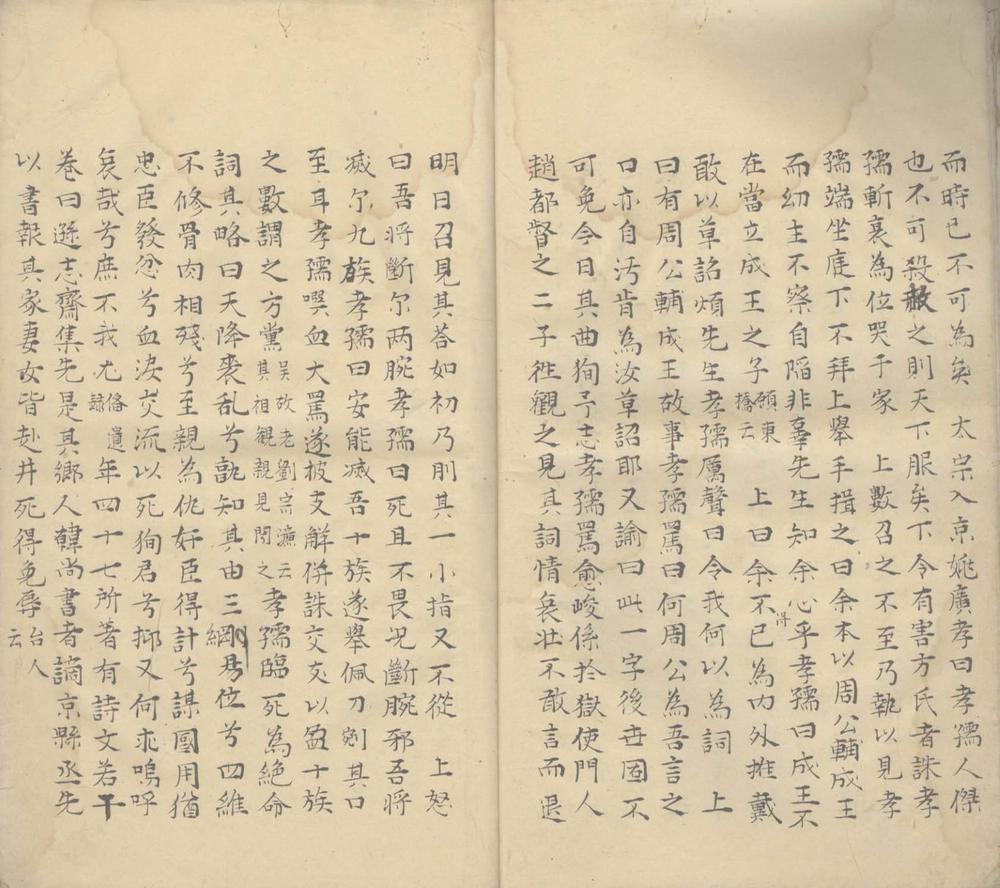 而時已不可為矣　太宗入京姚廣孝曰孝孺人傑
也不可殺赦之則天下服矣下令有害方氏者誅孝
孺斬衰為位哭于家　上數召之不至乃執以見孝
孺端坐庭下不拜上舉手揖之曰余本以周公輔成王
而幼主不察自陷非辜先生知余心乎孝孺曰成王不
在當立成王之子顧東橋云　上曰余不得已為内外推戴
敢以草詔煩先生孝孺厲聲曰令我何以為詞　上
曰有周公輔成王故事孝孺罵曰何周公為吾言之
口亦自汚肯為汝草詔耶又諭曰此一字後丗固不
可免今日其曲狥予志孝孺罵愈峻係於獄使門人
趙都督之二子徃觀之見其詞情哀壮不敢言而退
明日召見其荅如初乃刖其一小指又不從　上怒
曰吾将斷尔两腕孝孺曰死且不畏况斷腕邪吾将
滅尔九族孝孺曰安能滅吾十族遂舉佩刀剜其口
至耳孝孺噀血大罵遂披支解併誅交友以盈十族
之數謂之方黨吳故老劉宗濂云其祖觀親見聞之孝孺臨死為絶命
詞其略曰天降丧乱兮孰知其由三綱易位兮四維
不修骨肉相殘兮至親為仇奸臣得計兮謀國用猶
忠臣發忿兮血淚交流以死狥君兮抑又何求嗚呼
哀哉兮庶不我尤俻遺録年四十七所著有詩文若干
巻曰遜志齋集先是其鄉人韓尚書者謫京縣丞先
以書報其家妻女皆赴井死得免辱台人云